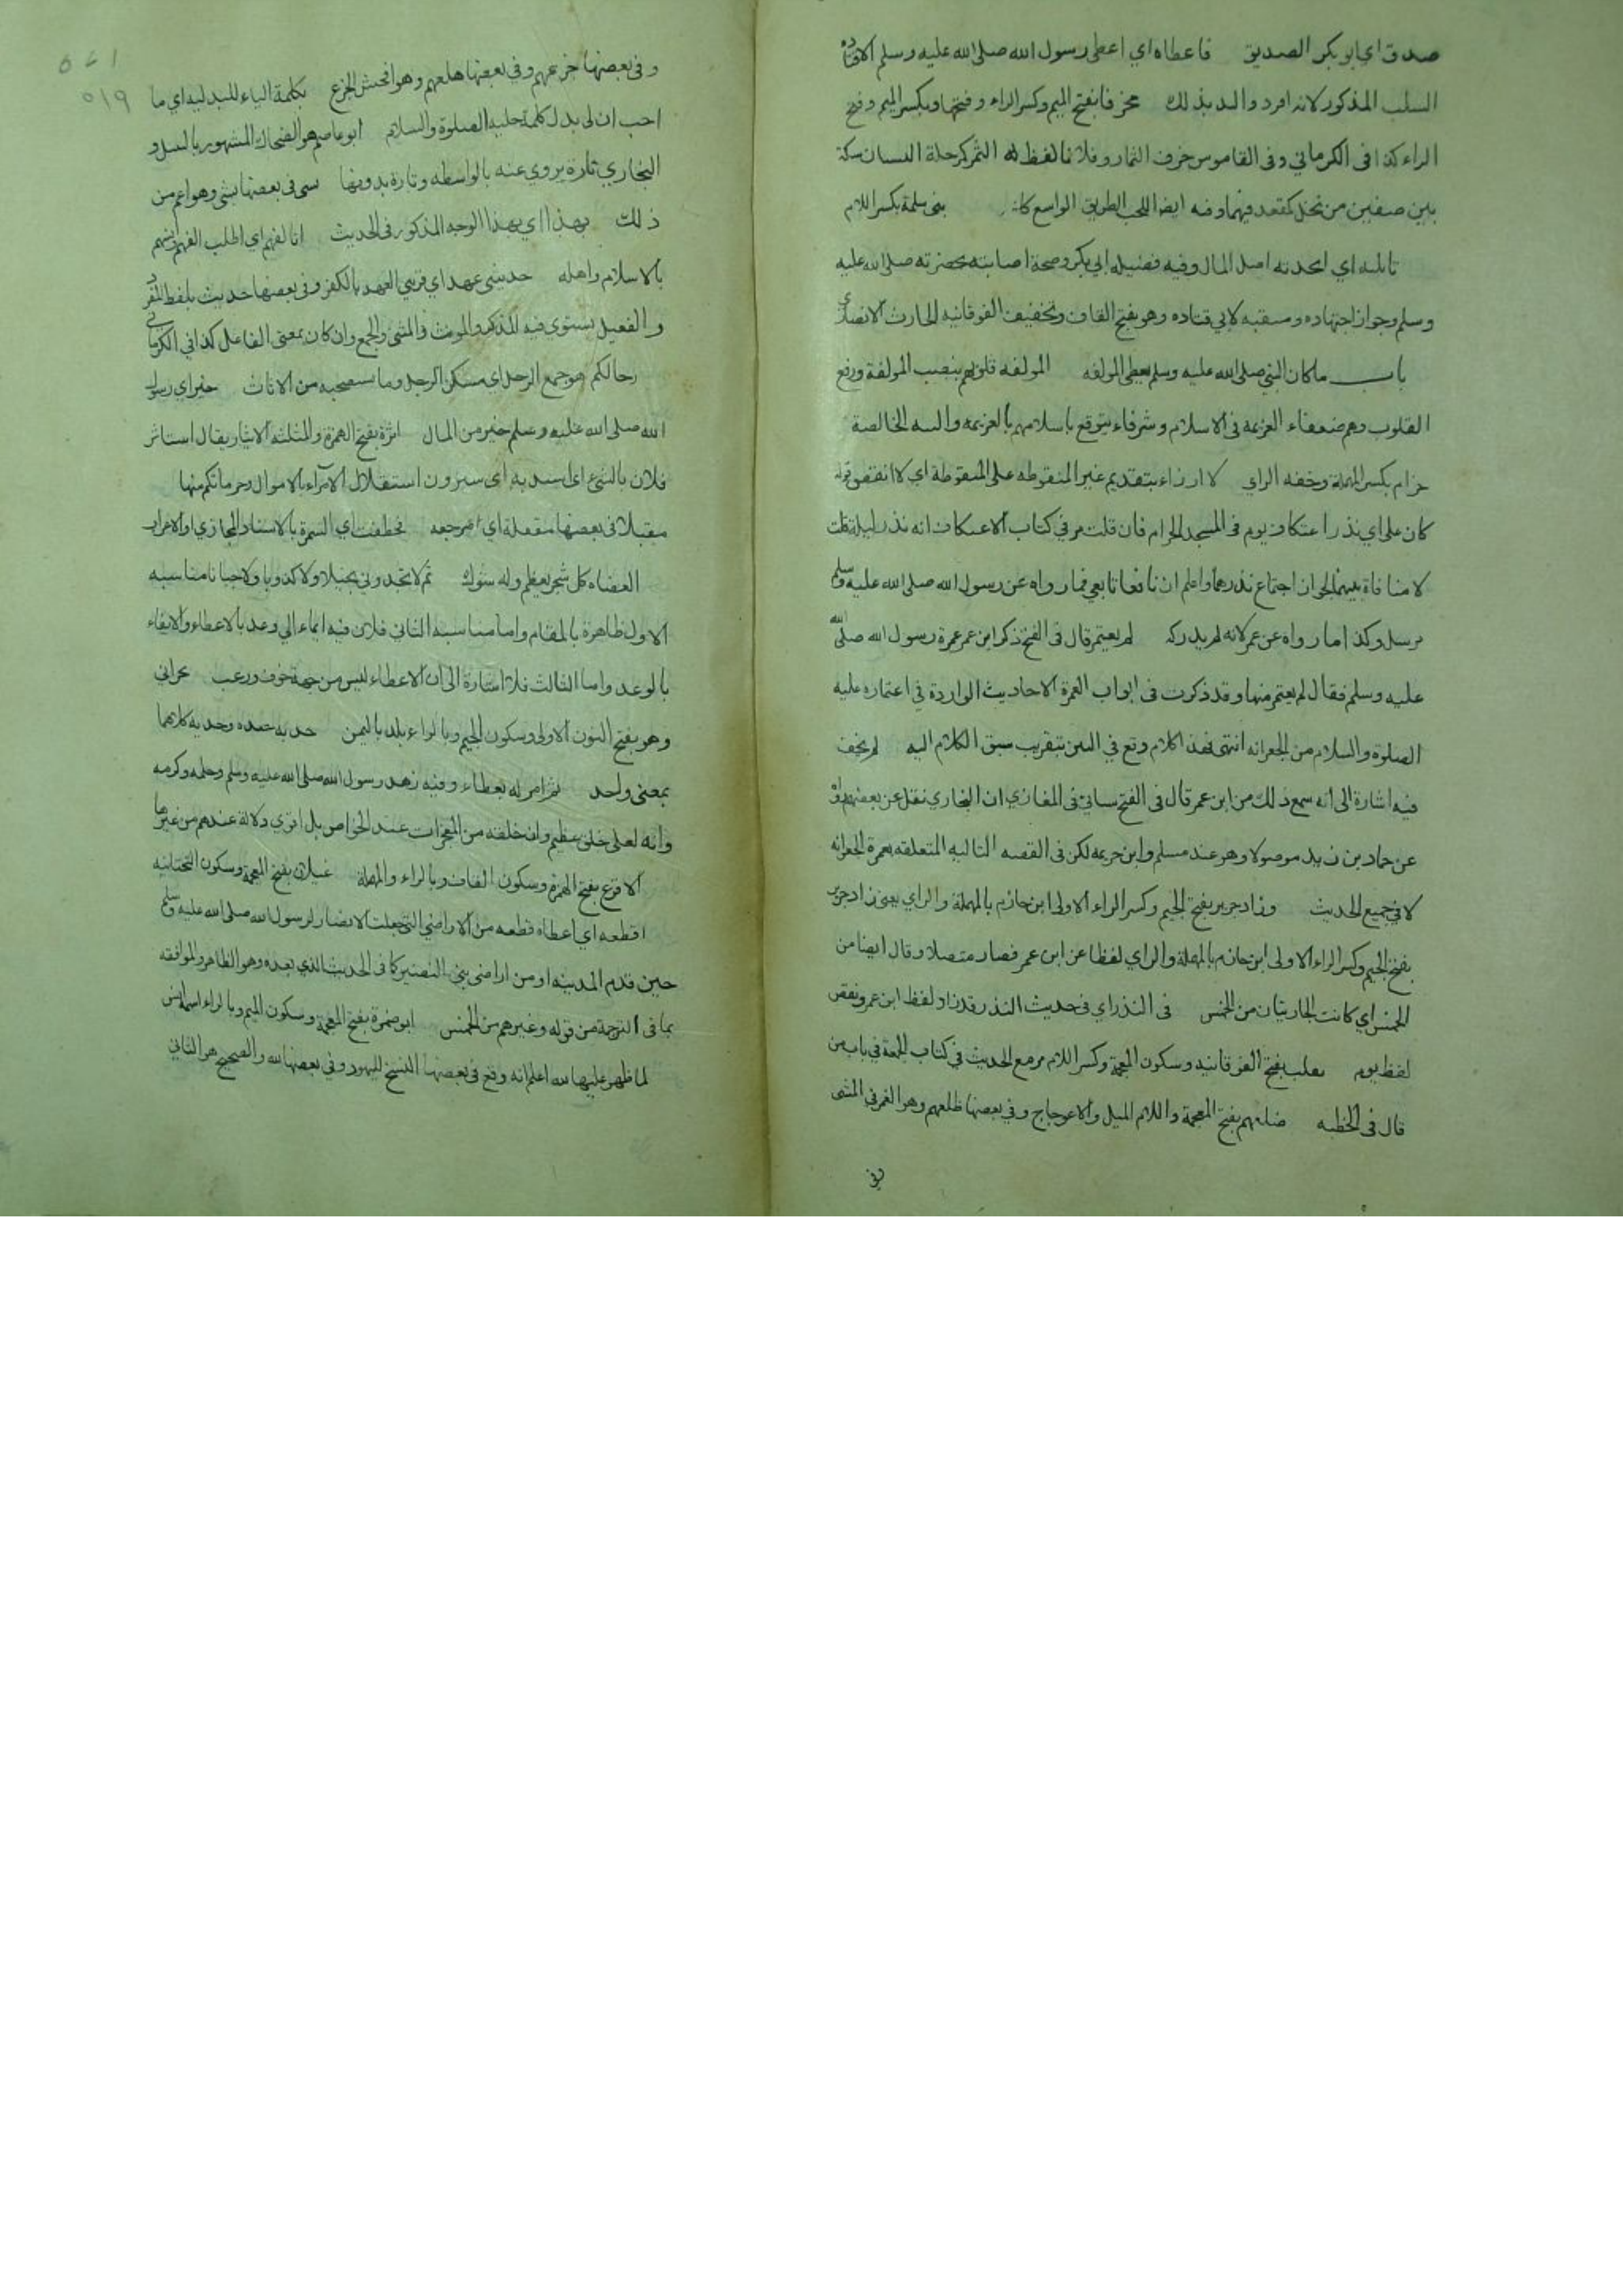 صدق اي ابو بكر الصديق فاعطاه اي اعطى رسول الله صلى الله عليه وسلم
السلب المذكور لانه افرد والد بذلك مخرفا بفتح الميم وكسر الراء وفتحها وبكسر الميم وفتح
الراء كذا في الكرماني وفي القاموس خرف الثمار وفلانا لفظ له الثمر كرحلة البستان سكة
بين صفين من نخل كمقعد فيهما وفيه ايضا اللحب الطريق الواسع بني سلمة بكسر اللام
تاثلته اي اتخذته اصل المال وفيه فضيله ابي بكر وصحة اصابته بحضرته صلى الله عليه
وسلم وجواز اجتهاده ومنقبه لابي قتاده وهو بفتح القاف وتخفيف الفوقانيه الحارث الانصاري
باب ما كان النبي صلى الله عليه وسلم يعطي المولفه المولفه قلوبهم بنصب المولفة ورفع
القلوب وهم ضعفاء العزيمة في الاسلام وشرفاء يتوقع باسلامهم بالعزيمه والنيه الخالصة
حزام بكسر المهملة وخفه الزاي لا ارزاء بتقديم غير المنقوطه على المنقوطة اي لا انقص قوله
كان علي اي نذر اعتكاف يوم في المسجد الحرام فان قلت مر في كتاب الاعتكاف انه نذر ليلة قلت
لا منافاة بينهما لجواز اجتماع نذرهما واعلم ان نافعا تابعي فما رواه عن رسول الله صلى الله عليه وسلم
مرسل وكذا ما رواه عن عمر لانه لم يدركه لم يعتمر قال في الفتح ذكر ابن عمر عمرة رسول الله صلى الله
عليه وسلم فقال لم يعتمر منها وقد ذكرت في ابواب العمرة الاحاديث الواردة في اعتماره عليه
الصلوة والسلام من الجعرانه انتهى فهذا كلام وقع في البين بتقريب سبق الكلام اليه لم يخف
فيه اشارة الى انه سمع ذلك من ابن عمر قال في الفتح سياتي في المغازي ان البخاري نقل عن بعضهم
عن حماد بن زيد موصولا وهو عند مسلم وابن خزيمه لكن في القصه التاليه المتعلقه بعمرة الجعرانه
لا في جميع الحديث وزاد جرير بفتح الجيم وكسر الراء الاولى ابن حازم بالمهملة والزاي يعني زاد جرير
بفتح الجيم وكسر الراء الاولى ابن حازم بالمهملة والزاي لفظا عن ابن عمر فصار متصلا وقال ايضا من
الخمس اي كانت الجاريتان من الخمس في النذر اي في حديث النذر ولفظ ابن عمر ونقص
لفظ يوم تغلب بفتح الفوقانيه وسكون المعجمة وكسر اللام مر مع الحديث في كتاب الجمعة في باب من
قال في الخطبه ضلعهم بفتح المعجمة واللام الميل والاعوجاج وفي بعضها ظلعهم وهو الغمز في المشي
وفي
٥١٩
وفي بعضها جزعهم وفي بعضها هلعهم وهو افحش الجزع بكلمة الباء للبدليه اي ما
احب ان لي بدل كلمة عليه الصلوة والسلام ابو عاصم هو الضحاك المشهور بالنبيل و
البخاري تارة يروي عنه بالواسطه وتارة بدونها سبي في بعضها بشي وهو اعم من
ذلك بهذا اي بهذا الوجه المذكور في الحديث اتالفهم اي اطلب الفهم
بالاسلام واهله حديثي عهد اي قريبي العهد بالكفر وفي بعضها حديث بلفظ المفرد
والفعيل يستوي فيه المذكر والمونث والمثنى والجمع وان كان بمعنى الفاعل كذا في الكرماني
رحالكم هو جمع الرحل اي مسكن الرجل وما يستصحبه من الاثاث خير اي رسول
الله صلى الله عليه وسلم خير من المال اثرة بفتح الهمزة والمثلثه الايثار يقال استاثر
فلان بالشئ اي استبد به اي سترون استقلال الامراء بالاموال وحرمانكم منها
مقبلا في بعضها مقفلة اي مرجعه خطفت اي السمرة بالاسناد المجازي او الاعراب
العضاه كل شجر يعظم وله شوك ثم لا تجدوني بخيلا ولا كذوبا ولا جبانا مناسبه
الاول ظاهرة بالمقام واما مناسبه الثاني فلان فيه ايماء الى وعد بالاعطاء والايفاء
بالوعد واما الثالث فلاشارة الى ان الاعطاء ليس من جهة خوف ورعب نجراني
وهو بفتح النون الاولى وسكون الجيم وبالراء بلد باليمن جذبه جبذه وجذبه كلاهما
بمعنى واحد ثم امر له بعطاء وفيه زهد رسول الله صلى الله عليه وسلم وحلمه وكرمه
وانه لعلى خلق عظيم وان خلقه من المعجزات عند الخواص بل اقوى دلالة عندهم من غيرها
الاقرع بفتح الهمزة وسكون القاف وبالراء والمهملة غيلان بفتح المعجمة وسكون التحتانيه
اقطعه اي اعطاه قطعه من الاراضي التي جعلت الانصار لرسول الله صلى الله عليه وسلم
حين قدم المدينه او من اراضي بني النضير كما في الحديث الذي بعده وهو الظاهر والموافقه
بما في الترجمة من قوله وغيرهم من الخمس ابو ضمرة بفتح المعجمة وسكون الميم وبالراء اسمه انس
لما ظهر عليها لله اعلم انه وقع في بعضها النسخ لليهود وفي بعضها لله والصحيح هو الثاني